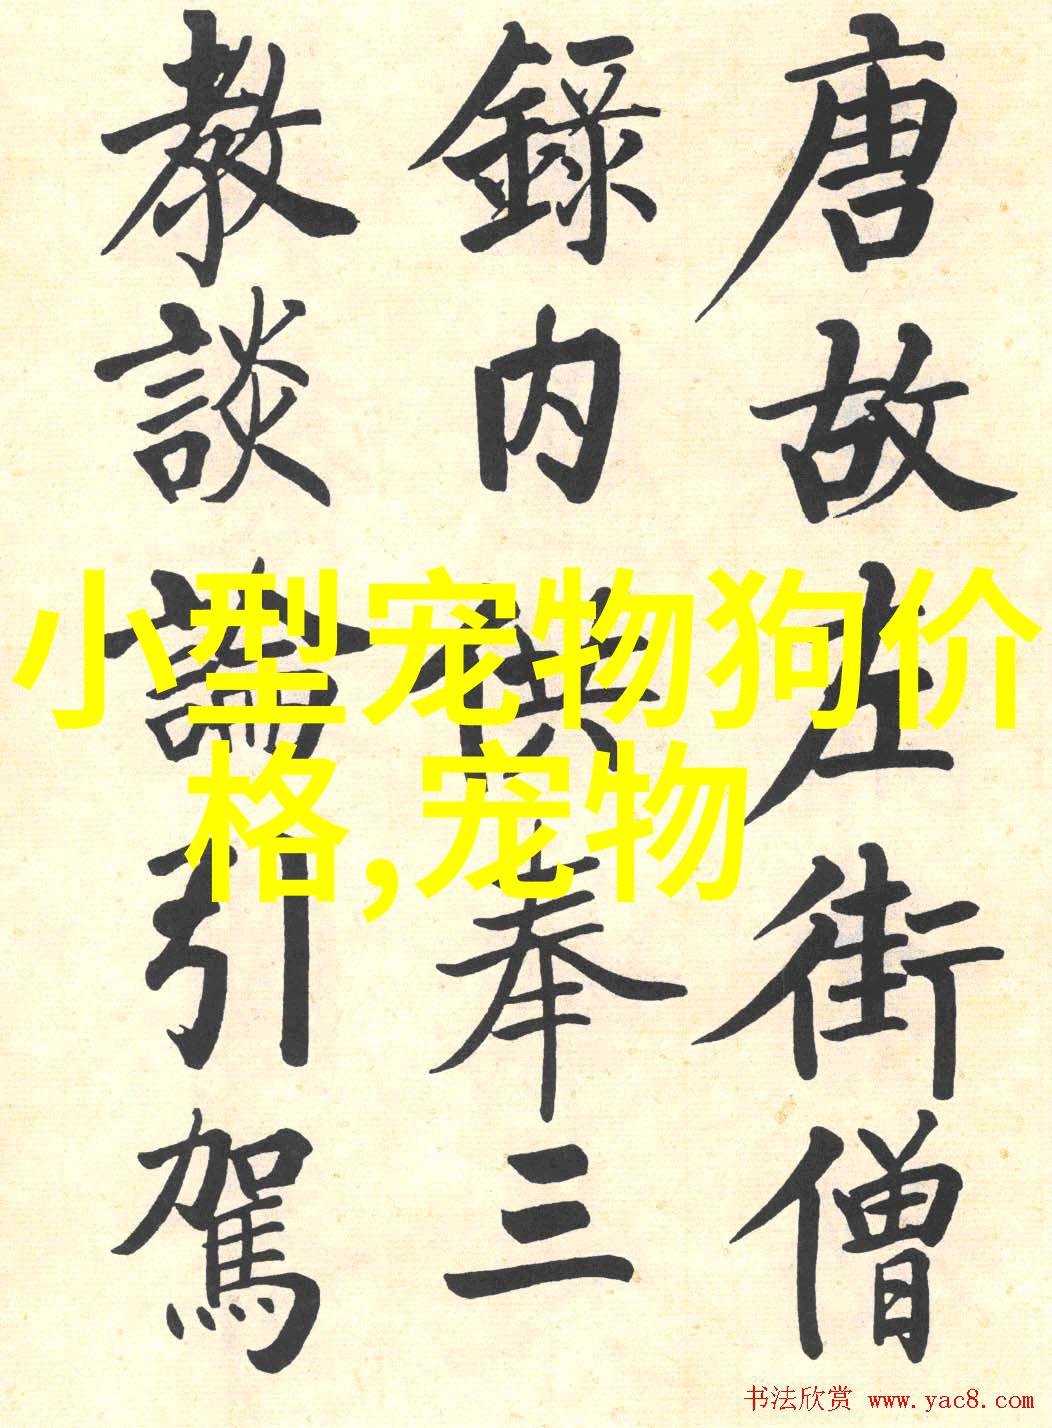 唐故左街僧
錄内供奉三
教談論引駕
小型宠物狗价
格,宠物
书法欣赏 www.yac8.com